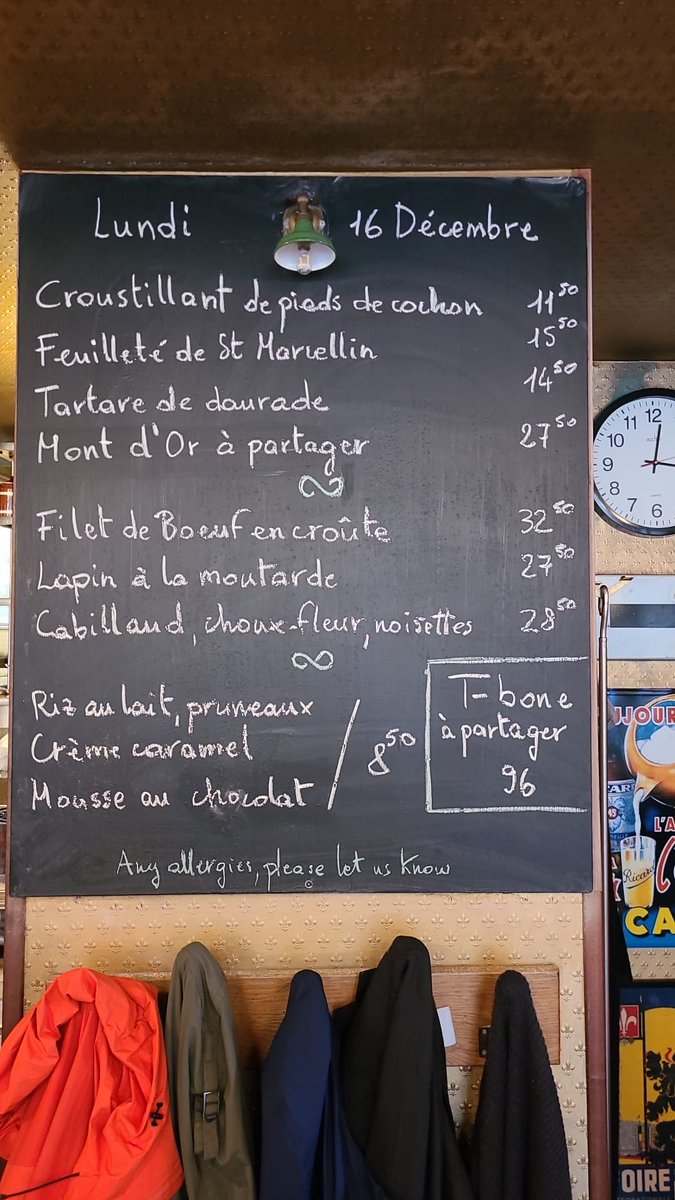 Lundi 16 Décembre
Croustillant de pieds de cochon 11⁵⁰
Feuilleté de St Marcellin 15⁵⁰
Tartare de daurade 14⁵⁰
Mont d'Or à partager 27⁵⁰
Filet de Boeuf en croûte 32⁵⁰
Lapin à la moutarde 27⁵⁰
Cabillaud, choux-fleur, noisettes 28⁵⁰
Riz au lait, pruneaux
Crème caramel
Mousse au chocolat
8⁵⁰
T-bone
à partager
96
Any allergies, please let us know
12
11 1
10
9
8
7 6
UJOUR
L'A
Ricard
CA
OIRE